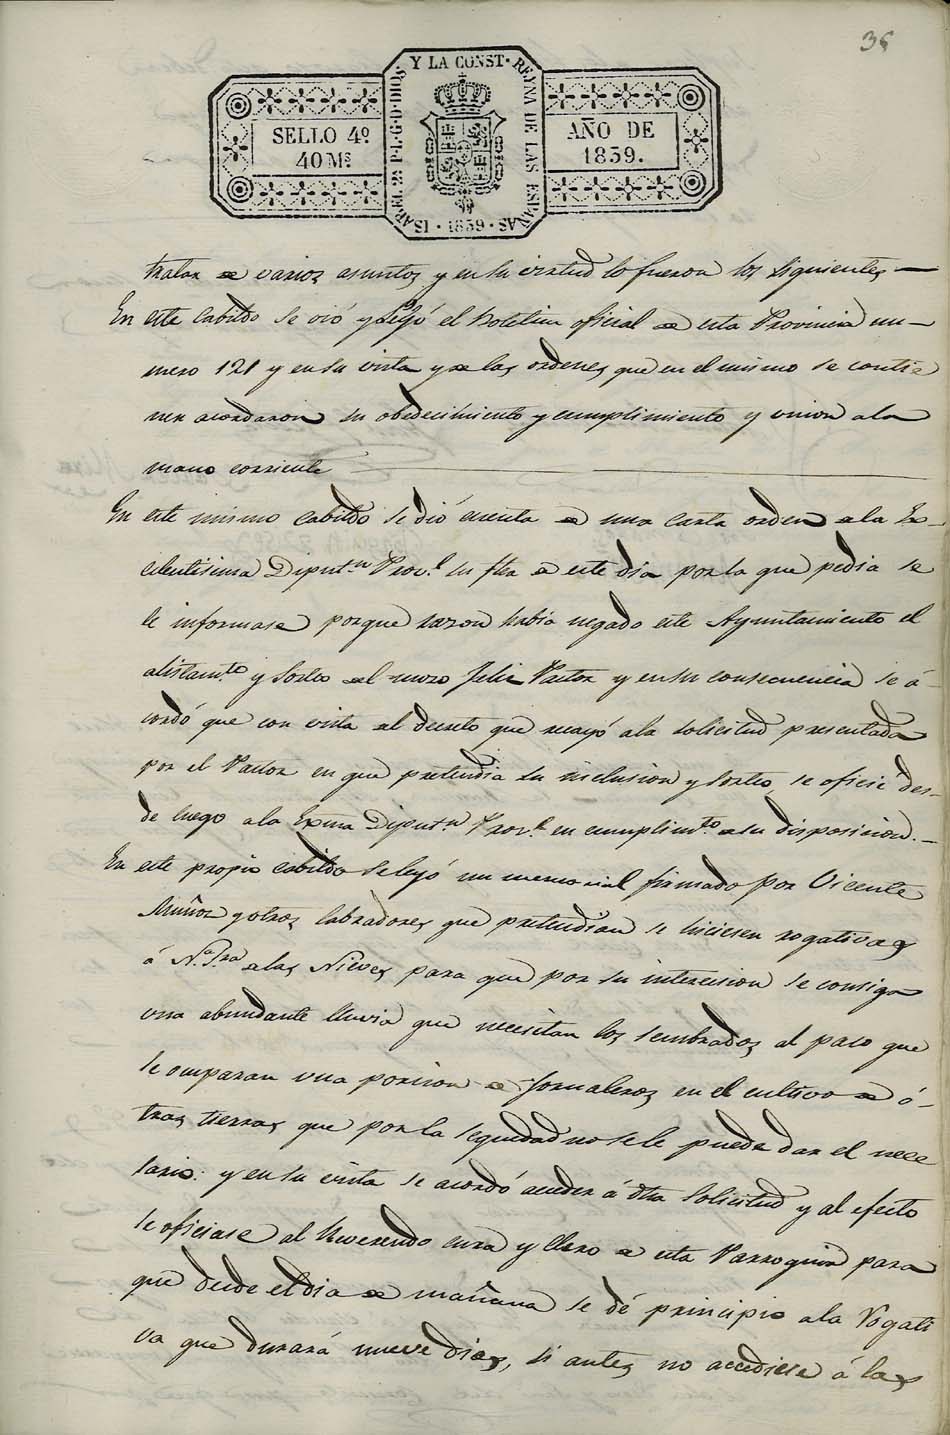 36
Y LA CONST. REYNA DE LAS ESPAÑAS. 1839. ISABEL 2ª P.L.G.D.DIOS
SELLO 4º
40 Ms
AÑO DE
1839.
tratar de varios asuntos y en su virtud lo fueron los siguientes
En este Cabildo se vió y leyó el Boletin oficial de esta Provincia nu-
mero 121 y en su vista y de las ordenes que en el mismo se contie
nen acordaron su obedecimiento y cumplimiento y union a la
mano corriente
En este mismo Cabildo se dió cuenta de una Carta orden de la Ex-
celentisima Diputn Provl su fha de este dia por la que pedia se
le informase porque razon habia negado este Ayuntamiento el
alistamto y Sorteo del mozo Felix Pastor y en su consecuencia se a-
cordó que con vista del decreto que recayó a la solicitud presentada
por el Pastor en que pretendia su inclusion y Sorteo, se oficie des-
de luego a la Exma Diputn Provl en cumplimto de su disposicion.
En este propio Cabildo se leyó un memorial firmado por Vicente
Muñoz y otros labradores que pretendian se hiciesen rogativas
á Na Sra de las Nieves para que por su intercesion se consiga
una abundante lluvia que necesitan los sembrados al paso que
se ocuparan una porcion de Jornaleros en el cultivo de ó-
tras tierras que por la sequedad no se le puede dar el nece
sario: y en su vista se acordó acceder á dha Solicitud y al efecto
se oficiase al Reverendo cura y Clero de esta Parroquia para
que desde el dia de mañana se dé principio a la Rogati
va que durará nueve dias, si antes no accediese á las